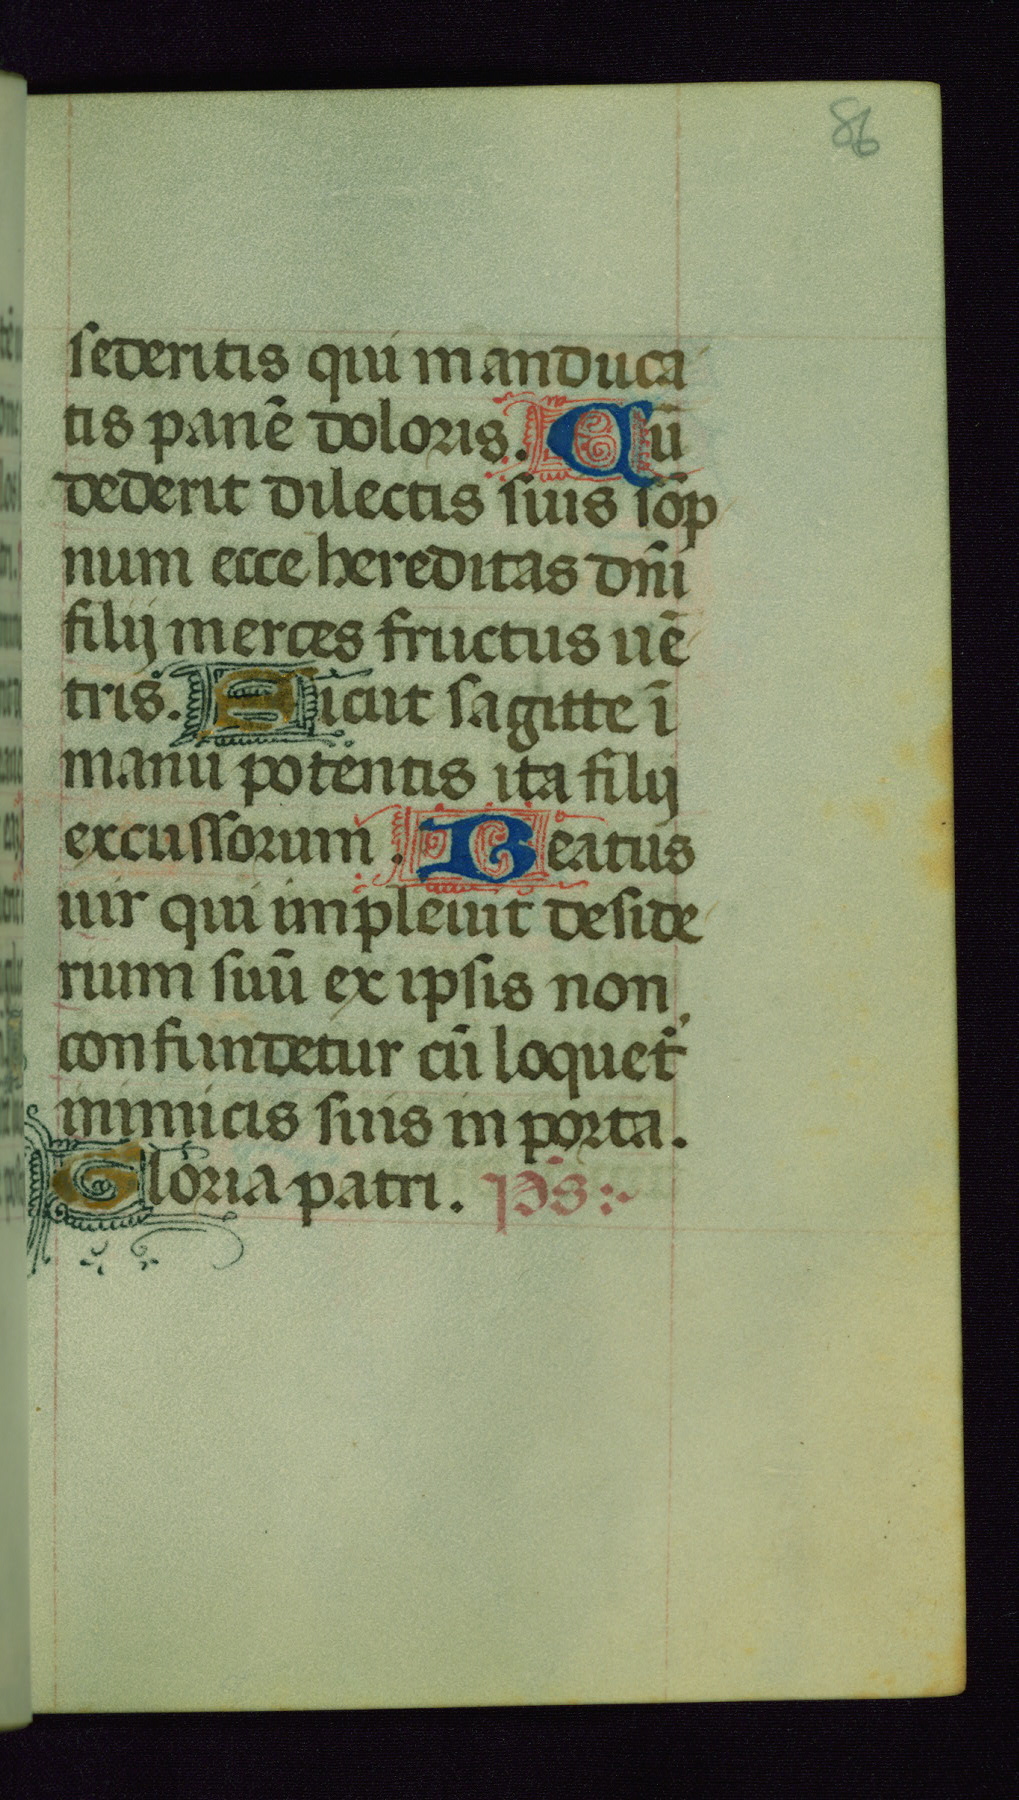 86
sederitis qui manduca
tis panē doloris. Cū
dederit dilectis suis sōp
num ecce hereditas dn̄i
filij merces fructus uē
tris. Sicut sagitte ī
manu potentis ita filij
excussorum. Beatus
uir qui impleuit deside
rium suū ex ipsis non
confundetur cū loquet᷑
inimicis suis in porta.
Gloria patri. p̄s